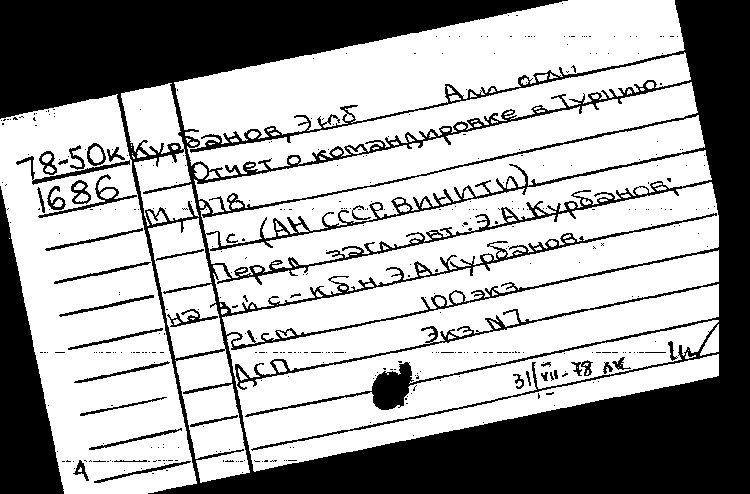 78-50к Курбанов, Экиб Али оглы
1686 Отчет о командировке в Турцию.
М., 1978.
7с. (АН СССР. ВИНИТИ).
Перед загл. авт.: Э.А. Курбанов;
на 3-й с. - к.б.н. Э.А. Курбанов.
21 cm. 100 экз.
ДСП. Экз. N7.
31/VII-78
4